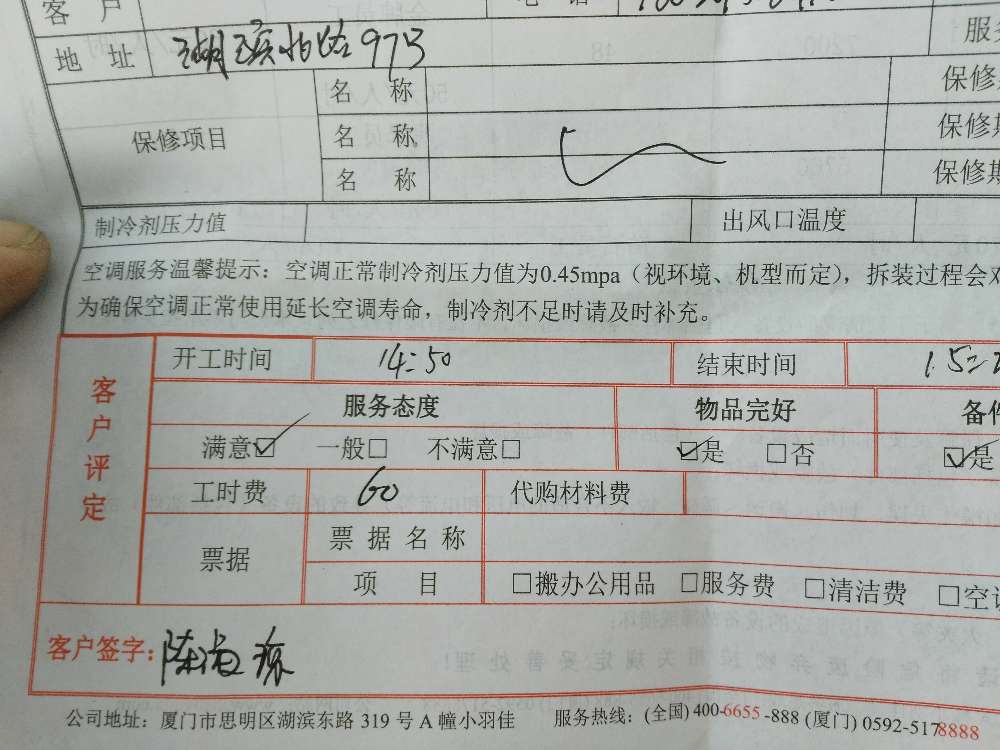 客 户
地 址 湖滨北路973 服务
名 称 保修
保修项目 名 称 保修
名 称 保修期
制冷剂压力值 出风口温度
空调服务温馨提示：空调正常制冷剂压力值为0.45mpa（视环境、机型而定），拆装过程会对
为确保空调正常使用延长空调寿命，制冷剂不足时请及时补充。
客户评定
开工时间 14:50 结束时间 15:
服务态度 物品完好 备件
满意☑ 一般□ 不满意□ ☑是 □否 ☑是
工时费 60 代购材料费
票据 票 据 名 称
项 目 □搬办公用品 □服务费 □清洁费 □空调
客户签字：陈
公司地址：厦门市思明区湖滨东路 319 号 A 幢小羽佳 服务热线：(全国) 400-6655-888 (厦门) 0592-5178888